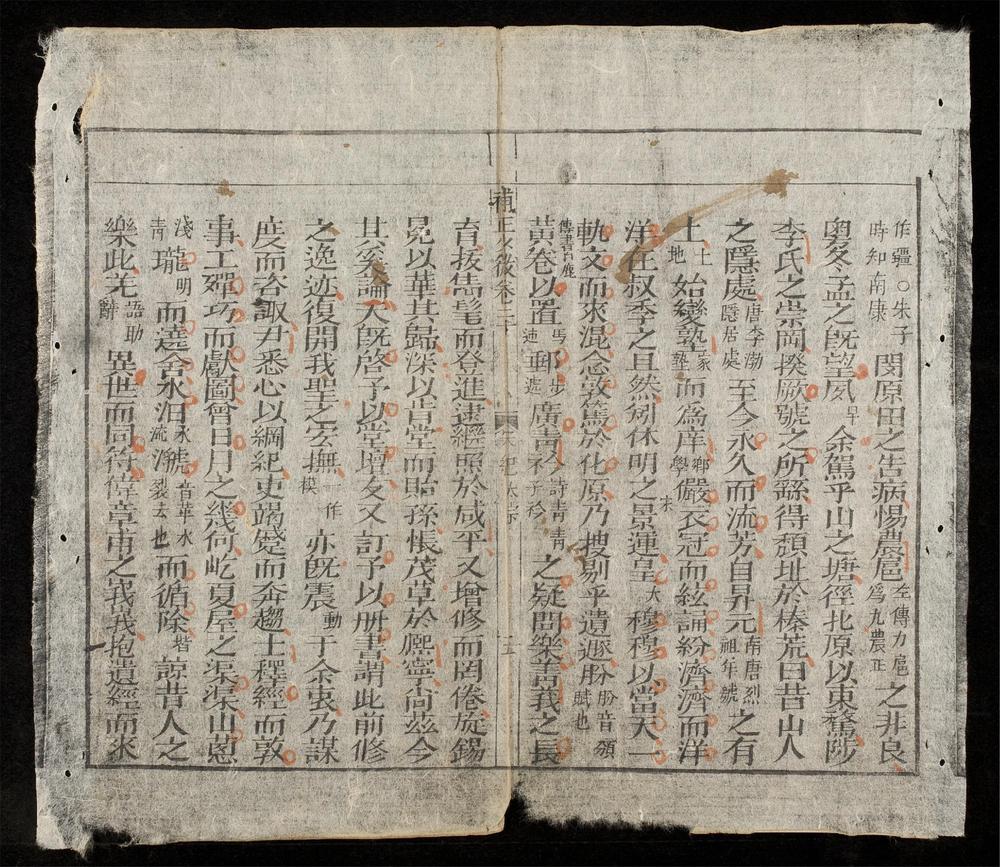 作疆○朱子時知南康閔原田之告病惕農扈左傳九扈爲九農正之非良
粵冬孟之旣望夙早余駕乎山之塘徑北原以東騖陟
李氏之崇岡揆厥號之所繇得頽址於榛荒曰昔山人
之隱處唐李渤隱居處至今永久而流芳自昇元南唐烈祖年號之有
土土地始變塾家塾而為庠鄉學儼衣冠而絃誦紛濟濟而洋
洋在叔季之且然矧休明之景運皇宋太穆穆以當天一
軌文而來混念敦篤於化原乃搜剔乎遺遯肦肦音頒賦也
黃卷以置馬遞郵步遞廣靑衿詩靑靑子衿之疑問樂菁莪之長
補正
卷二十
育拔雋髦而登進逮繼照於咸平又增修而罔倦旋錫
冕以華其歸深以肯堂而貽孫悵茂草於熙寧尚茲今
其奚論天旣啓予以堂壇友又訂予以册書謂此前修
之逸迹復開我聖之宏撫一作模亦旣震動于余衷乃謀
度而咨諏尹悉心以綱紀吏竭蹙而奔趨士釋經而敦
事工殫巧而獻圖曾日月之幾何屹夏屋之渠渠山蔥
淺靑瓏明而遶舍水汨而循除堦諒昔人之
樂此羌語助辭異世而同符偉章甫之峩峩抱遺經而來